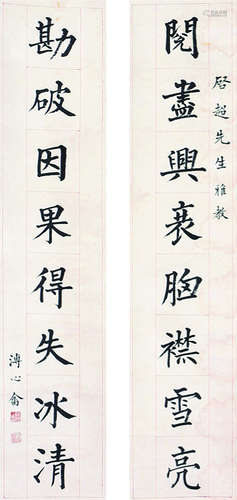 啟超先生雅教
閱盡興衰胸襟雪亮
勘破因果得失冰清
溥心畬